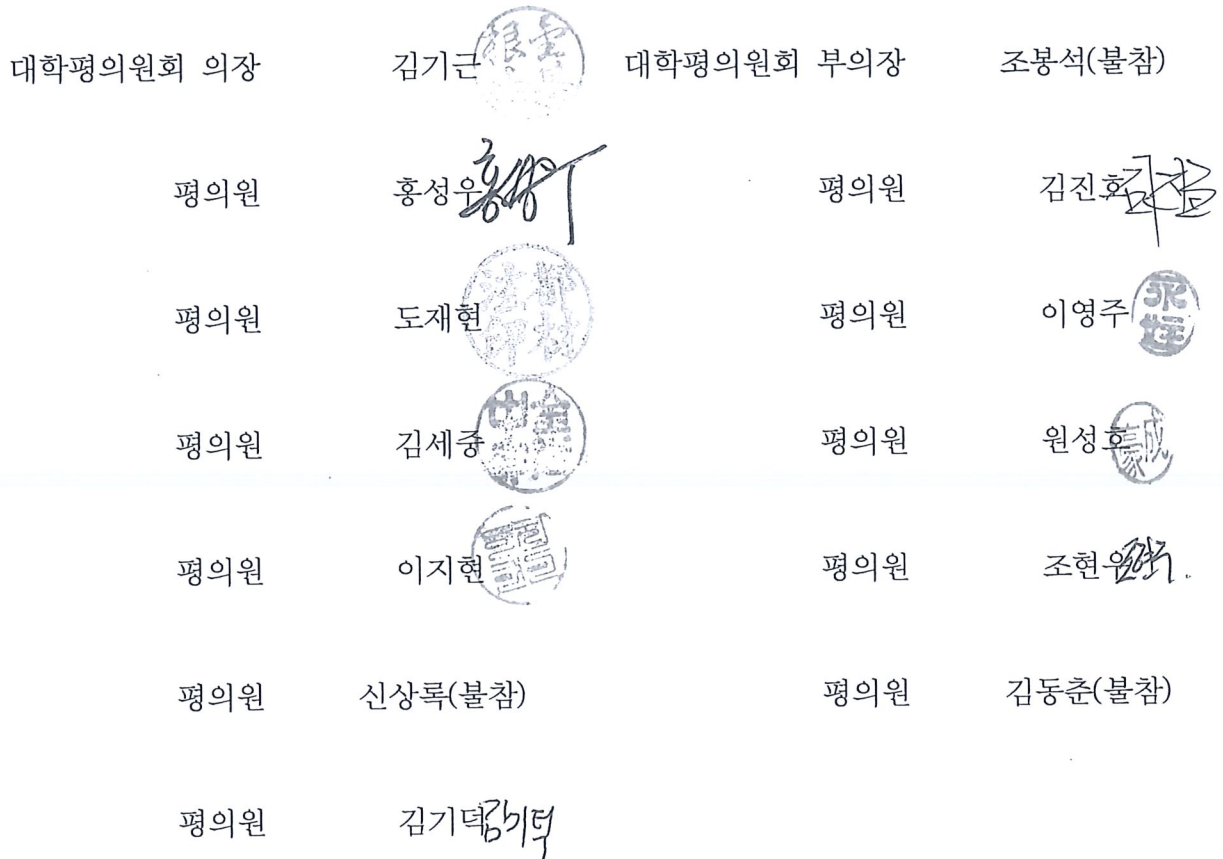 대학평의원회 의장 김기근 대학평의원회 부의장 조봉석(불참)
평의원 홍성우 평의원 김진호
평의원 도재현 평의원 이영주
평의원 김세중 평의원 원성호 成豪
평의원 이지현 평의원 조현우
평의원 신상록(불참) 평의원 김동춘(불참)
평의원 김기덕 김기덕